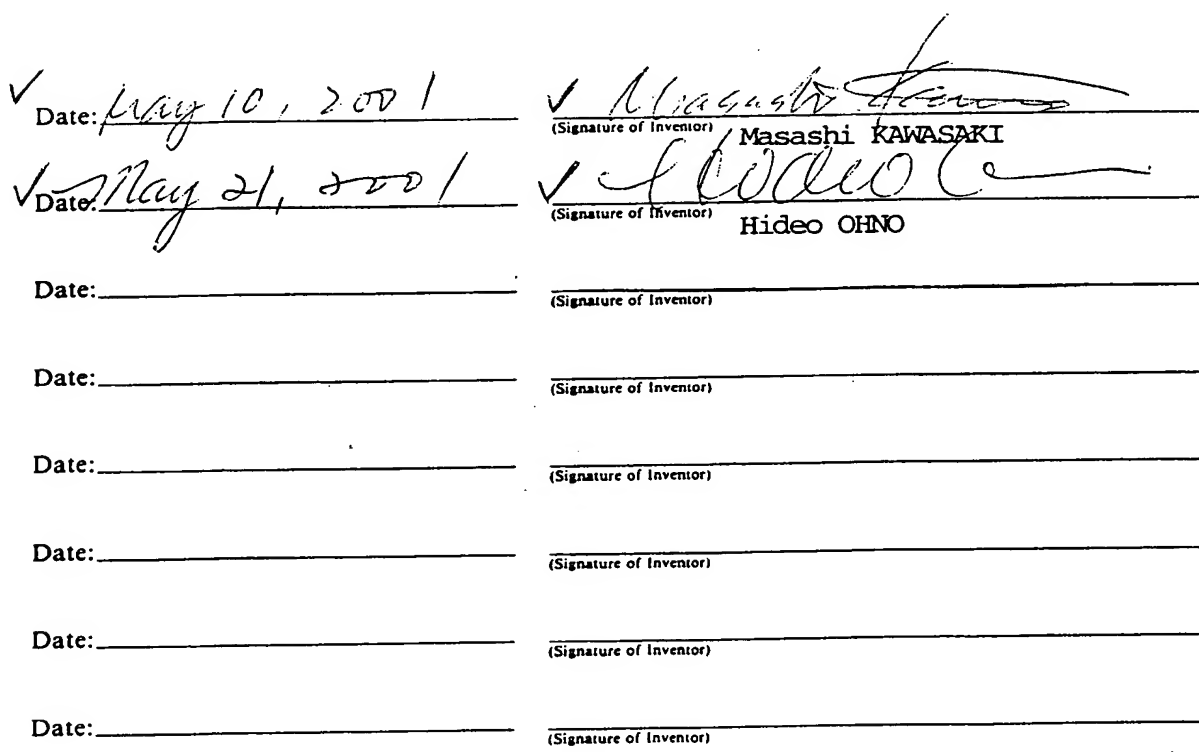 ✓ Date: May 10, 2001 ✓ Masashi Kawasaki
(Signature of Inventor) Masashi KAWASAKI
✓ Date: May 21, 2001 ✓ Hideo Ohno
(Signature of Inventor) Hideo OHNO
Date:
(Signature of Inventor)
Date:
(Signature of Inventor)
Date:
(Signature of Inventor)
Date:
(Signature of Inventor)
Date:
(Signature of Inventor)
Date:
(Signature of Inventor)